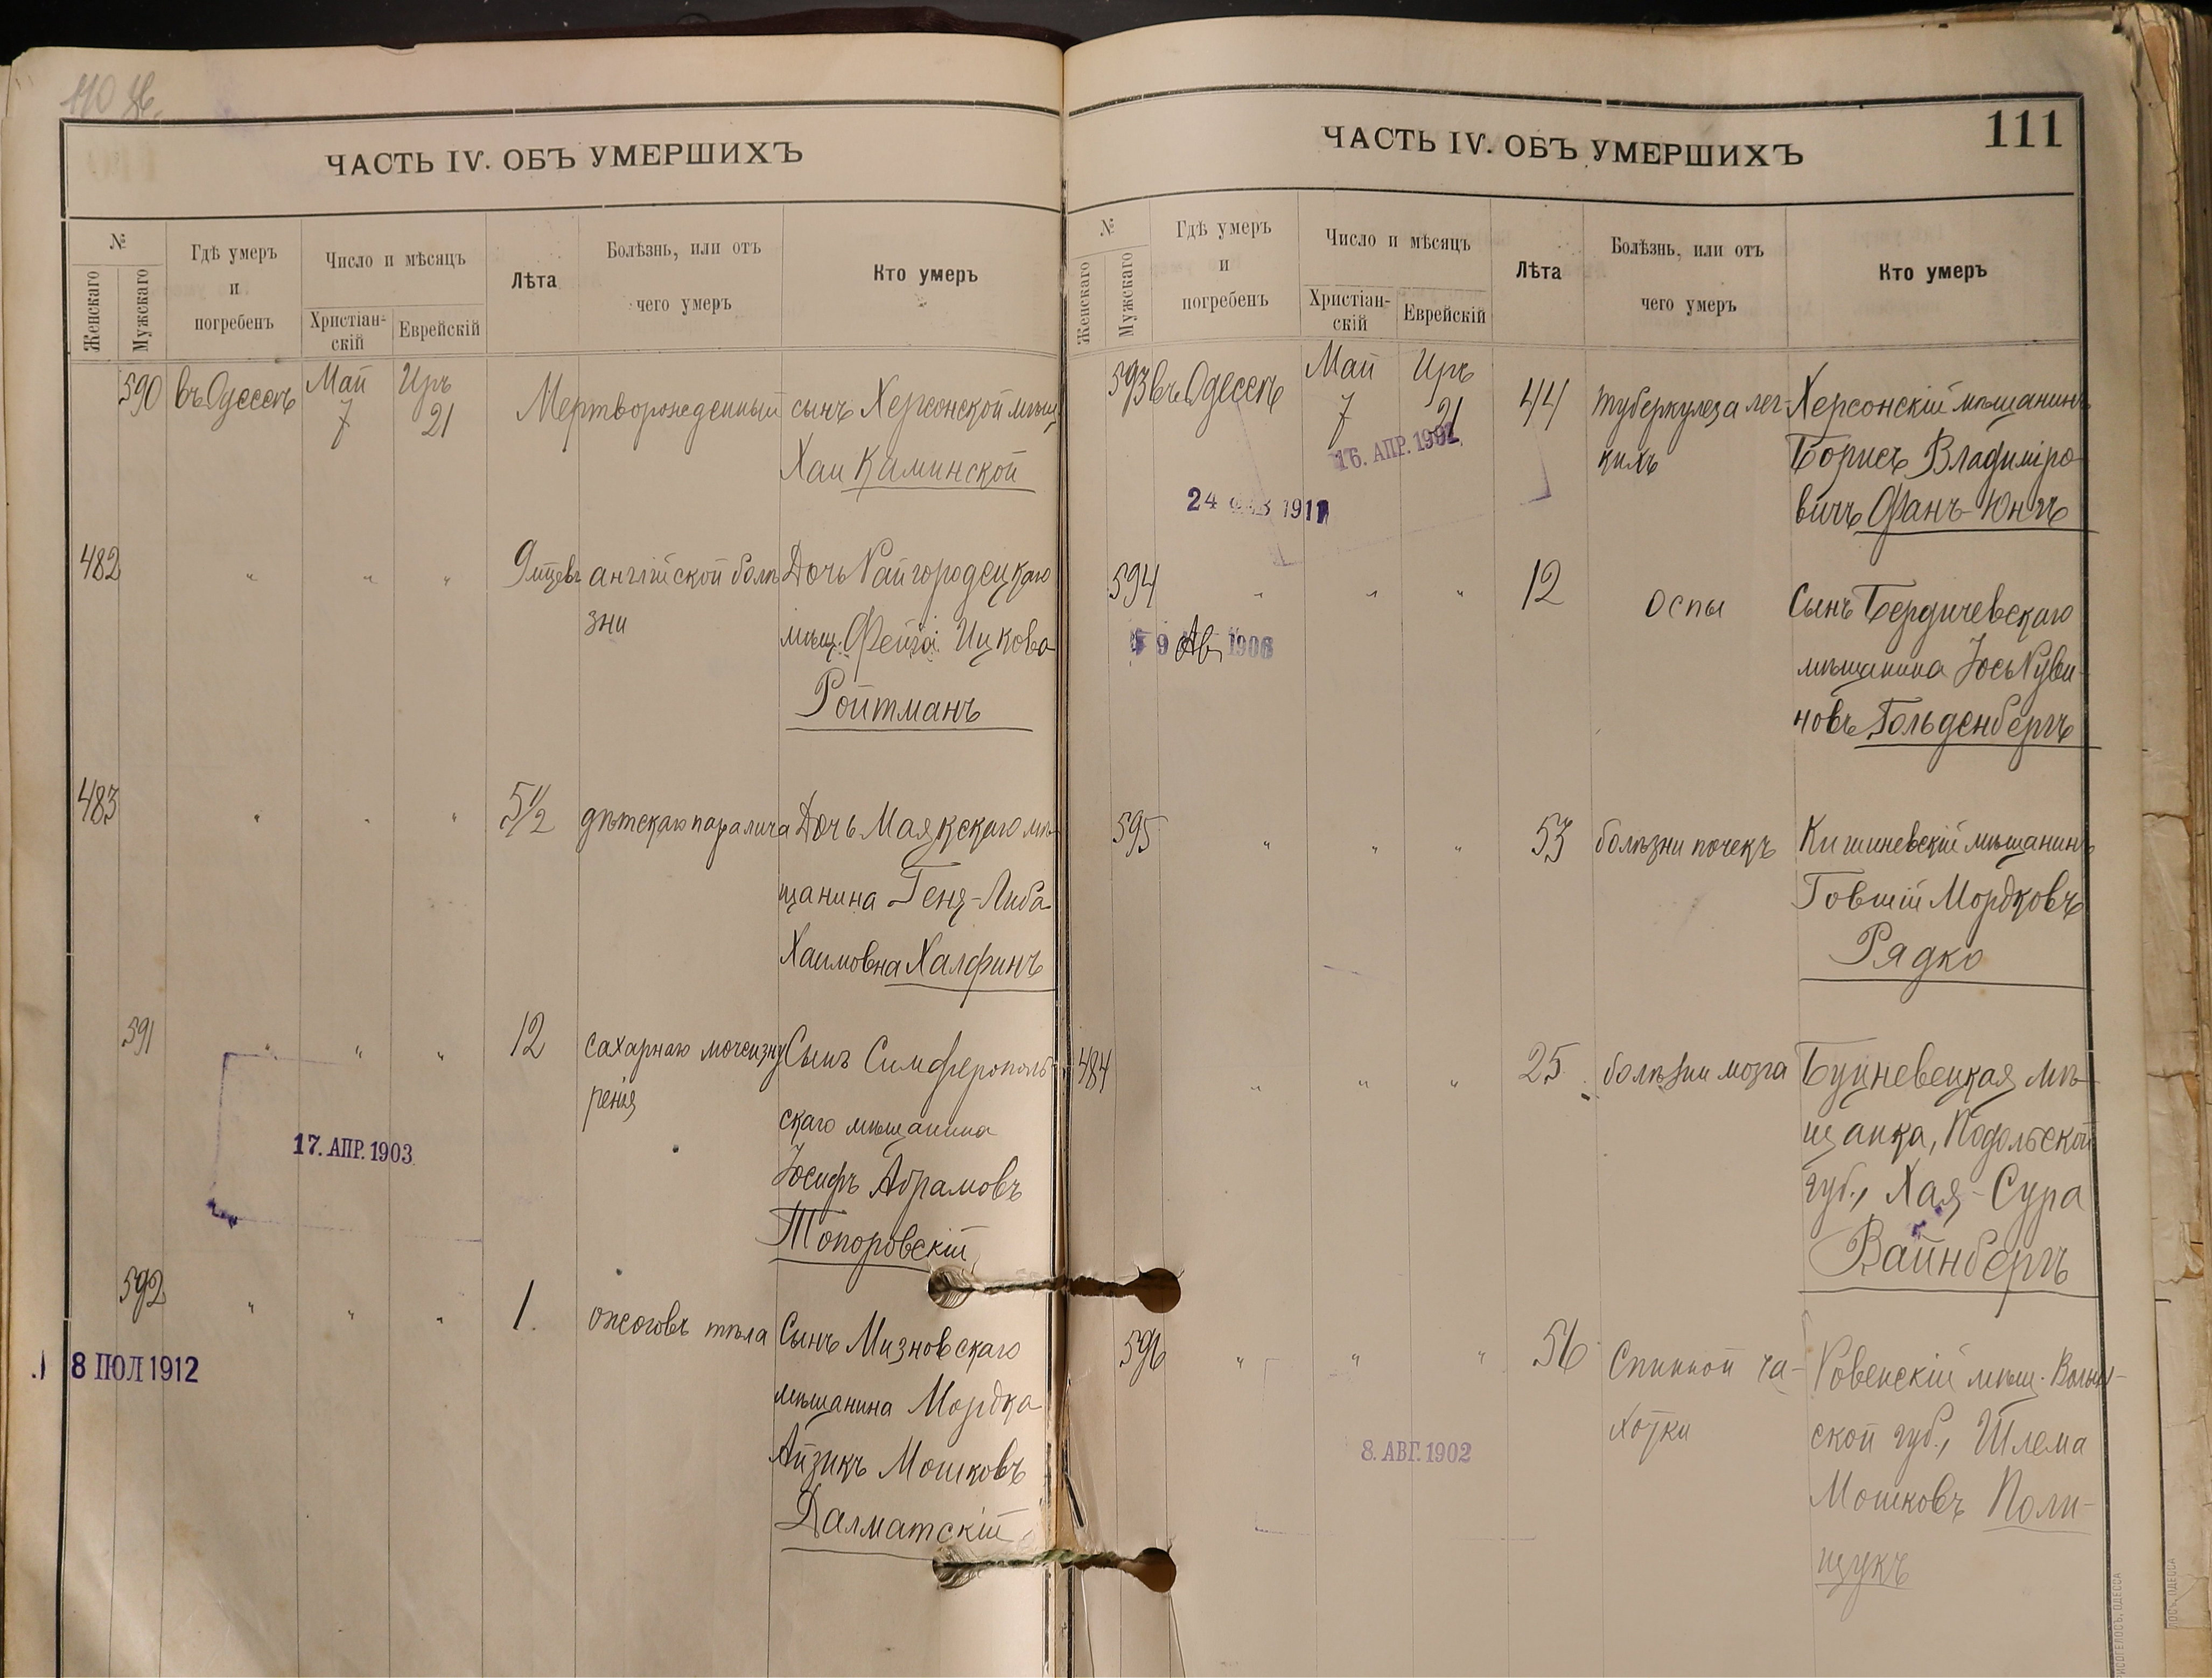 110 об.
ЧАСТЬ IV. ОБЪ УМЕРШИХЪ
№
Женскаго
Мужскаго
Гдѣ умеръ
и
погребенъ
Число и мѣсяцъ
Христіан-
скій
Еврейскій
Лѣта
Болѣзнь, или отъ
чего умеръ
Кто умеръ
590 въ Одессѣ Май 7 Иръ 21 Мертворожденный сынъ Херсонской мѣщ.
Хаи Каминской
482 " " " 9 мцевъ англійской болѣ Дочь Райгородецкаго
зни мѣщ. Фейга Ицкова
Ройтманъ
483 " " " 5 1/2 дѣтскаго паралича Дочь Маякскаго мѣ-
щанина Геня-Либа
Хаимовна Халфинъ
591 " " " 12 сахарнаго мочеизну Сынъ Симферополь-
ренія скаго мѣщанина
17. АПР. 1903
Іосифъ Абрамовъ
Топоровскій
592 " " " 1 ожоговъ тѣла Сынъ Мизновскаго
8 ІЮЛ 1912
мѣщанина Мордка
Айзикъ Мошковъ
Далматскій
ЧАСТЬ IV. ОБЪ УМЕРШИХЪ
111
№
Женскаго
Мужскаго
Гдѣ умеръ
и
погребенъ
Число и мѣсяцъ
Христіан-
скій
Еврейскій
Лѣта
Болѣзнь, или отъ
чего умеръ
Кто умеръ
593 въ Одессѣ Май 7 Иръ 21 44 туберкулеза лег- Херсонскій мѣщанинъ
кихъ Борисъ Владиміро-
16. АПР. 1902
вичъ Фанъ-Юнгъ
24 1911
594 " " " 12 оспы Сынъ Бердичевскаго
9 Ав 1906
мѣщанина Іось Руви-
новъ Гольденбергъ
595 " " " 53 болѣзни почекъ Кишиневскій мѣщанинъ
Говшій Мордковъ
Рядко
484 " " " 25 болѣзни мозга Буцневецкая мѣ-
щанка, Подольской
губ., Хая-Сура
Вайнбергъ
596 " " " 56 Спинной ча- Ровенскій мѣщ. Волын-
хотки ской губ., Шлема
8. АВГ. 1902
Мошковъ Поли-
щукъ